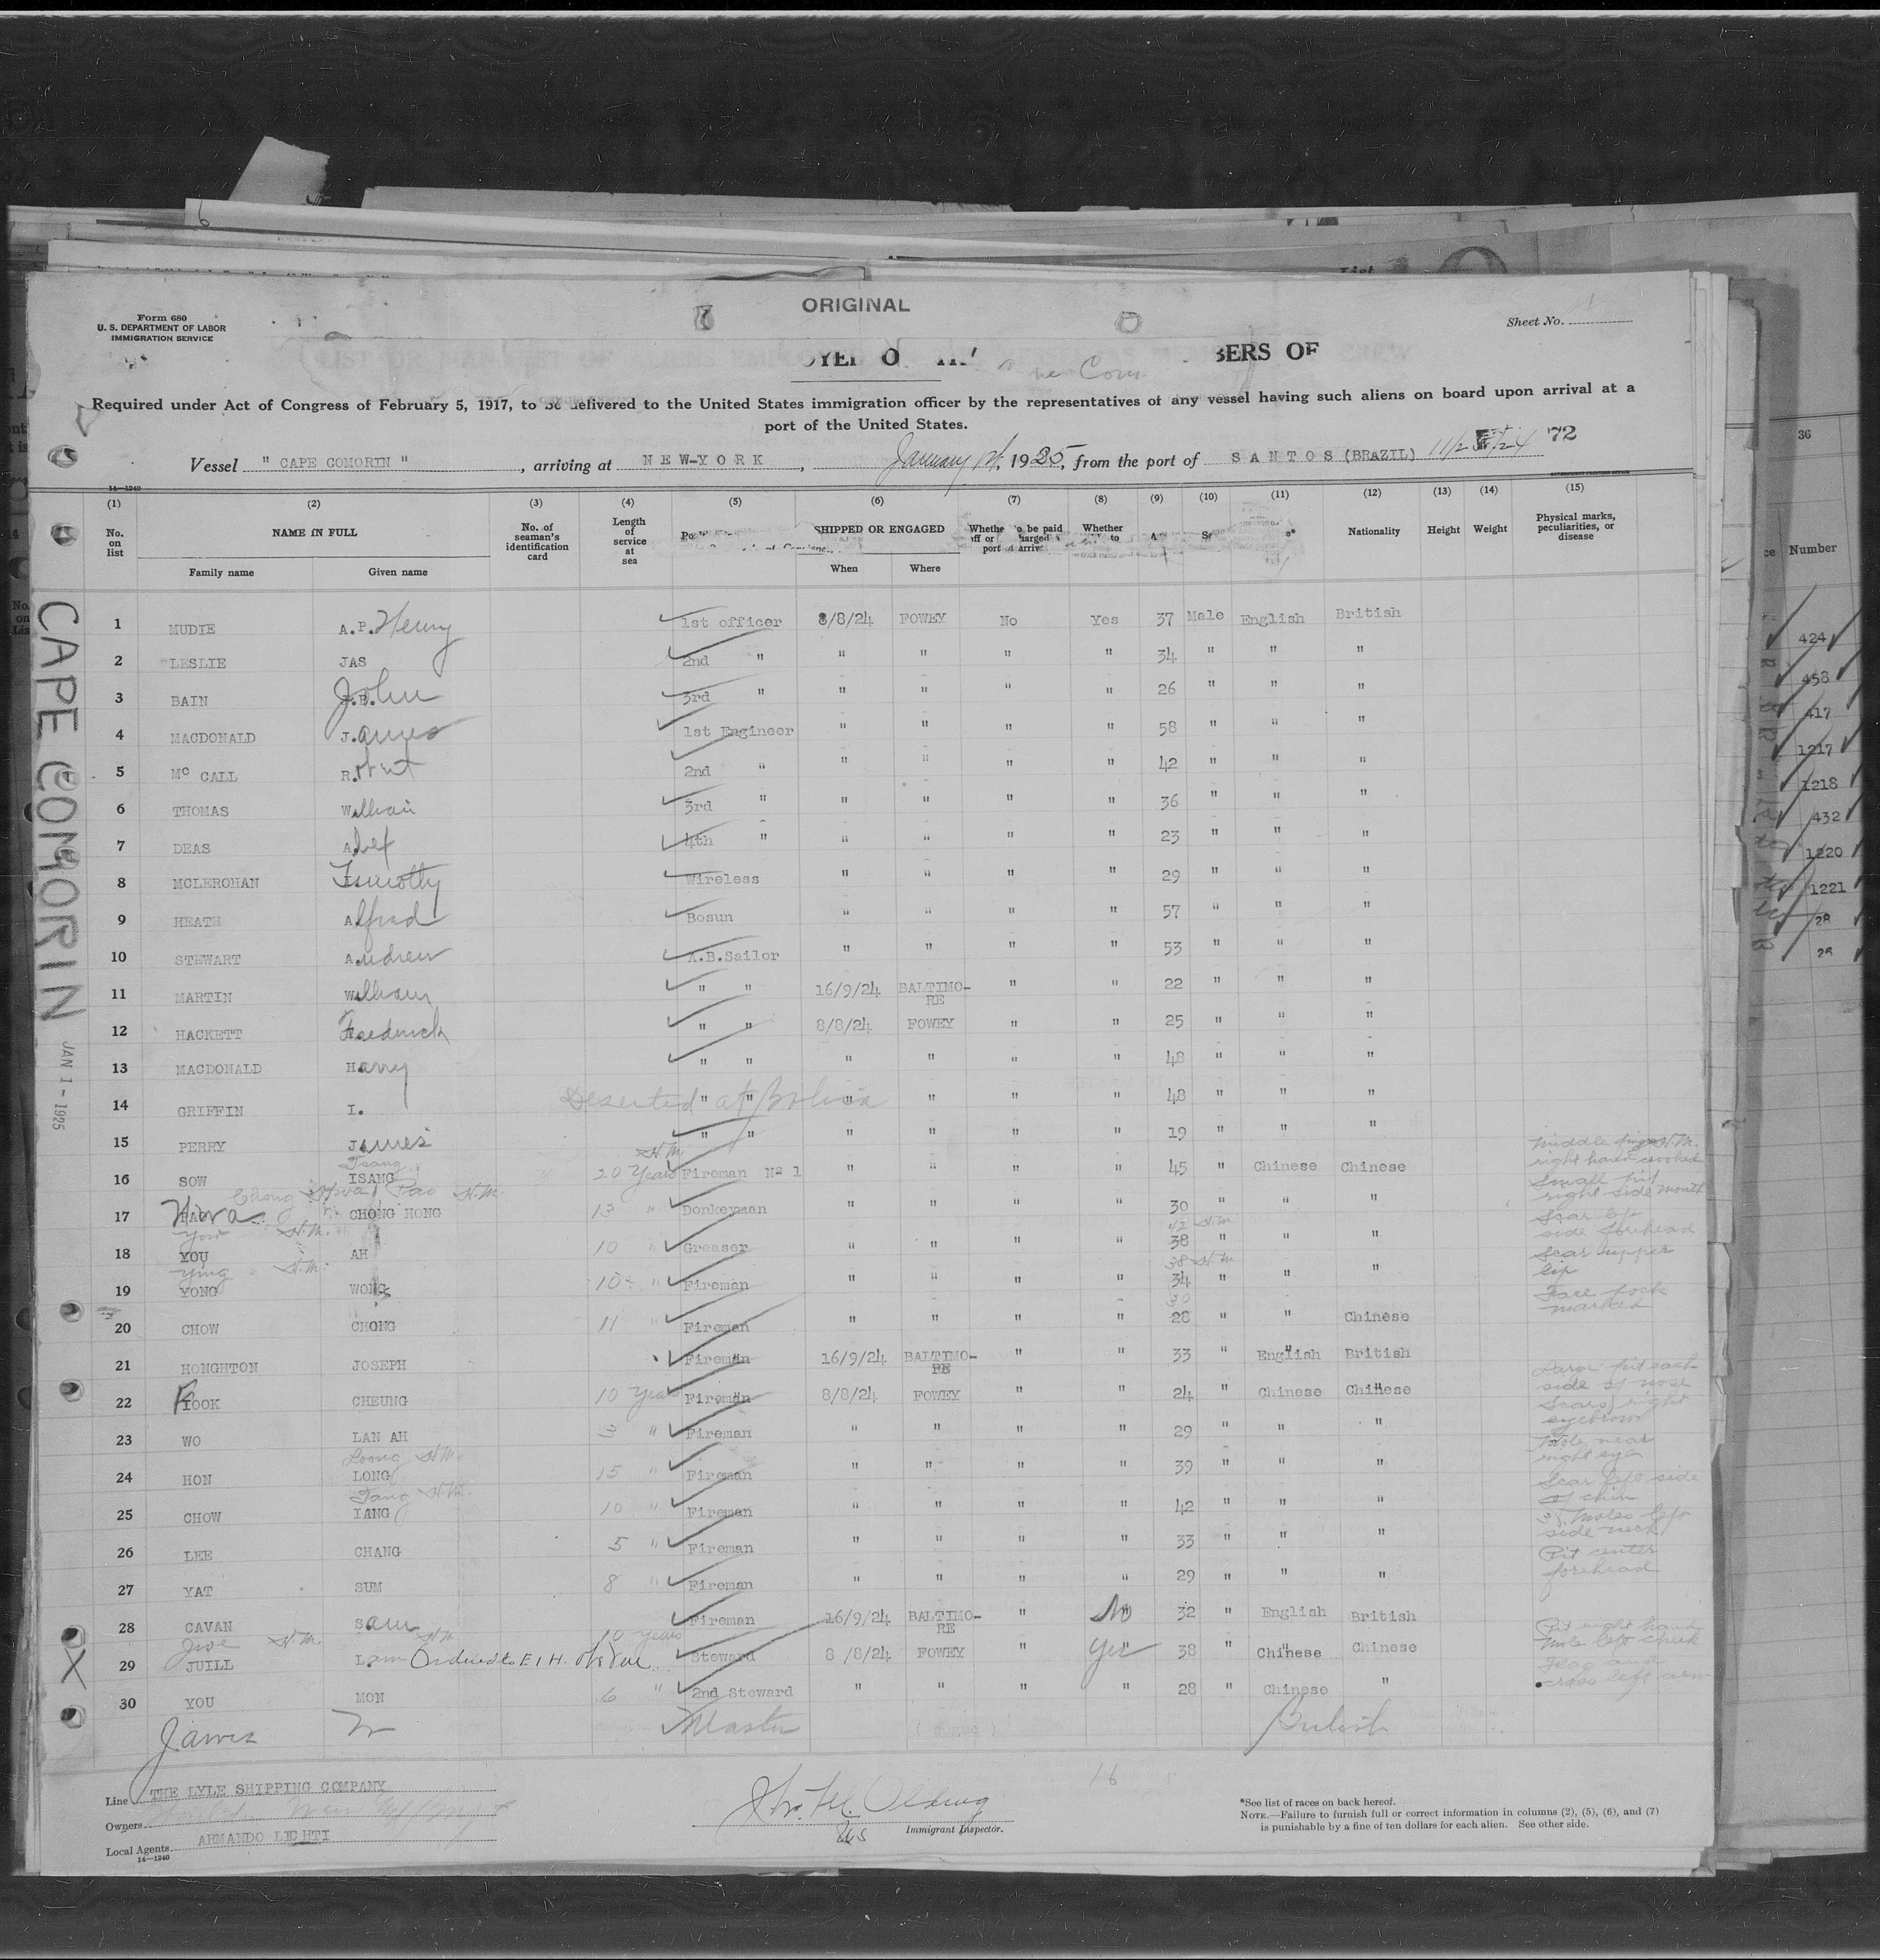 ORIGINAL
Form 680
U. S. DEPARTMENT OF LABOR
IMMIGRATION SERVICE
Sheet No. 1
BERS OF
Required under Act of Congress of February 5, 1917, to be delivered to the United States immigration officer by the representatives of any vessel having such aliens on board upon arrival at a
port of the United States.
Vessel " CAPE COMORIN ", arriving at NEW-YORK, January 1st, 1925, from the port of SANTOS (BRAZIL) 72
14—1240
(1) (2) (3) (4) (5) (6) (7) (8) (9) (10) (11) (12) (13) (14) (15)
No. on list NAME IN FULL No. of seaman's identification card Length of service at sea SHIPPED OR ENGAGED Whether to be paid off or port of Whether to Nationality Height Weight Physical marks, peculiarities, or disease
Family name Given name When Where
1 MUDIE A.P. Henry 1st officer 8/8/24 FOWEY No Yes 37 Male English British
2 LESLIE JAS 2nd " " " " " 34 " " "
3 BAIN John 3rd " " " " " 26 " " "
4 MACDONALD James 1st Engineer " " " " 58 " " "
5 Mc CALL Robert 2nd " " " " " 42 " " "
6 THOMAS William 3rd " " " " " 36 " " "
7 DEAS Alex 4th " " " " " 23 " " "
8 MCLEROHAN Timothy Wireless " " " " 29 " " "
9 HEATH Alfred Bosun " " " " 57 " " "
10 STEWART Andrew A.B.Sailor " " " " 53 " " "
11 MARTIN William " " 16/9/24 BALTIMO-RE " " 22 " " "
12 HACKETT Frederick " " 8/8/24 FOWEY " " 25 " " "
13 MACDONALD Harry " " " " " " 48 " " "
14 GRIFFIN I. Deserted at " " " " " " 48 " " "
15 PERRY James " " " " " " 19 " " "
Tsang H.M.
16 SOW ISANG 20 Years Fireman No 1 " " " " 45 " Chinese Chinese Middle finger H.M. right hand crooked
Chong Hwa Pao H.M.
17 Hwa CHONG HONG 13 " Donkeyman " " " " 30 " " " Small pit right side mouth
You H.M. 42 H.M.
18 YOU AH 10 " Greaser " " " " 38 " " " Scar left side forehead
Ying H.M. 38 H.M.
19 YONG WONG 10 " Fireman " " " " 34 " " " Scar upper lip
30
20 CHOW CHONG 11 " Fireman " " " " 28 " " Chinese Face pock marked
21 HONGHTON JOSEPH Fireman 16/9/24 BALTIMO-RE " " 33 " English British
22 FOOK CHEUNG 10 Years Fireman 8/8/24 FOWEY " " 24 " Chinese Chinese Large pit each side of nose
23 WO LAN AH 3 " Fireman " " " " 29 " " " Scars right eyebrow
Loong H.M.
24 HON LONG 15 " Fireman " " " " 39 " " " Mole near right eye
Tang H.M.
25 CHOW IANG 10 " Fireman " " " " 42 " " " Scar left side of chin
26 LEE CHANG 5 " Fireman " " " " 33 " " " 3 moles left side neck
27 YAT SUM 8 " Fireman " " " " 29 " " " Pit center forehead
28 CAVAN Sam Fireman 16/9/24 BALTIMO-RE " No 32 " English British
H.M. H.M. 10 Years
29 JUILL Lam Ordered to E I H. Steward 8 /8/24 FOWEY " Yes 38 " Chinese Chinese Pit right hand Mole left cheek
30 YOU MON 6 " 2nd Steward " " " " 28 " Chinese " Flag and cross left arm
James W Master British
Line THE LYLE SHIPPING COMPANY
Owners
Local Agents ARMANDO LICHTI
14—1240
Immigrant Inspector.
*See list of races on back hereof.
NOTE.—Failure to furnish full or correct information in columns (2), (5), (6), and (7)
is punishable by a fine of ten dollars for each alien. See other side.
CAPE COMORIN
JAN 1 - 1925
36
Number
424
458
417
1217
1218
432
1220
1221
28
26